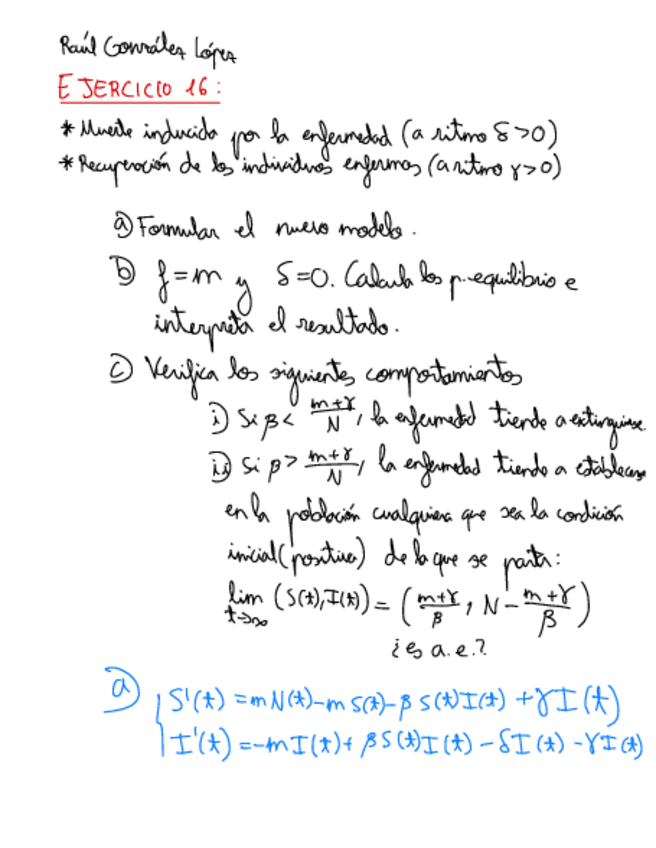 Raúl González López
EJERCICIO 16:
* Muerte inducida por la enfermedad (a ritmo δ>0)
* Recuperación de los individuos enfermos (a ritmo γ>0)
a) Formular el nuevo modelo.
b) f=m y δ=0. Calcula los p.equilibrio e
interpreta el resultado.
c) Verifica los siguientes comportamientos
i) Si β < (m+γ)/N, la enfermedad tiende a extinguirse.
ii) Si β > (m+γ)/N, la enfermedad tiende a establecerse
en la población cualquiera que sea la condición
inicial (positiva) de la que se parta:
lim t→∞ (S(t), I(t)) = ((m+γ)/β, N - (m+γ)/β)
¿es a.e.?
a) { S'(t) = mN(t) - mS(t) - βS(t)I(t) + γI(t)
I'(t) = -mI(t) + βS(t)I(t) - δI(t) - γI(t)